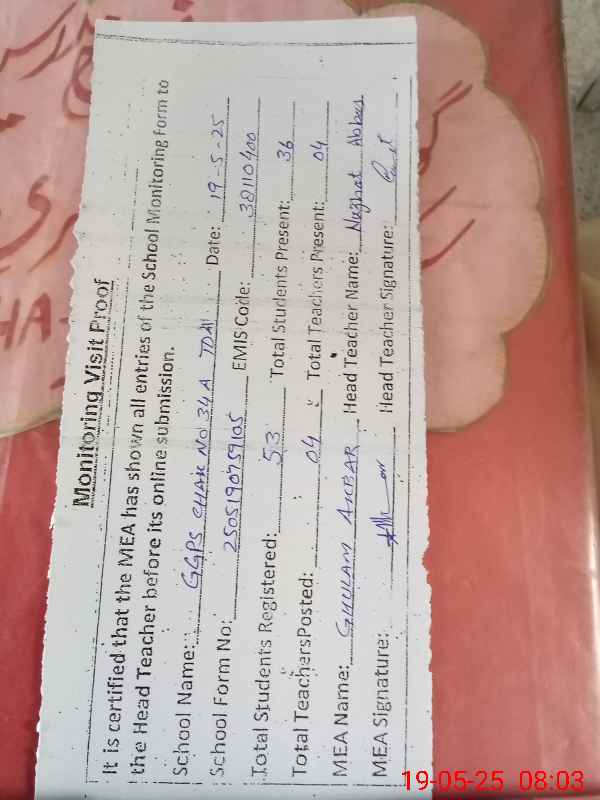 Monitoring Visit Proof
It is certified that the MEA has shown all entries of the School Monitoring Form to
the Head Teacher before its online submission.
School Name: GGPS CHAK NO 34A TDA Date: 19-5-25
School Form No: 2505190759105 EMIS Code: 38110400
Total Students Registered: 53 Total Students Present: 36
Total TeachersPosted: 04 Total Teachers Present: 04
MEA Name: GHULAM AKBAR Head Teacher Name: Nuzhat Abbas
MEA Signature: Head Teacher Signature:
19-05-25 08:03